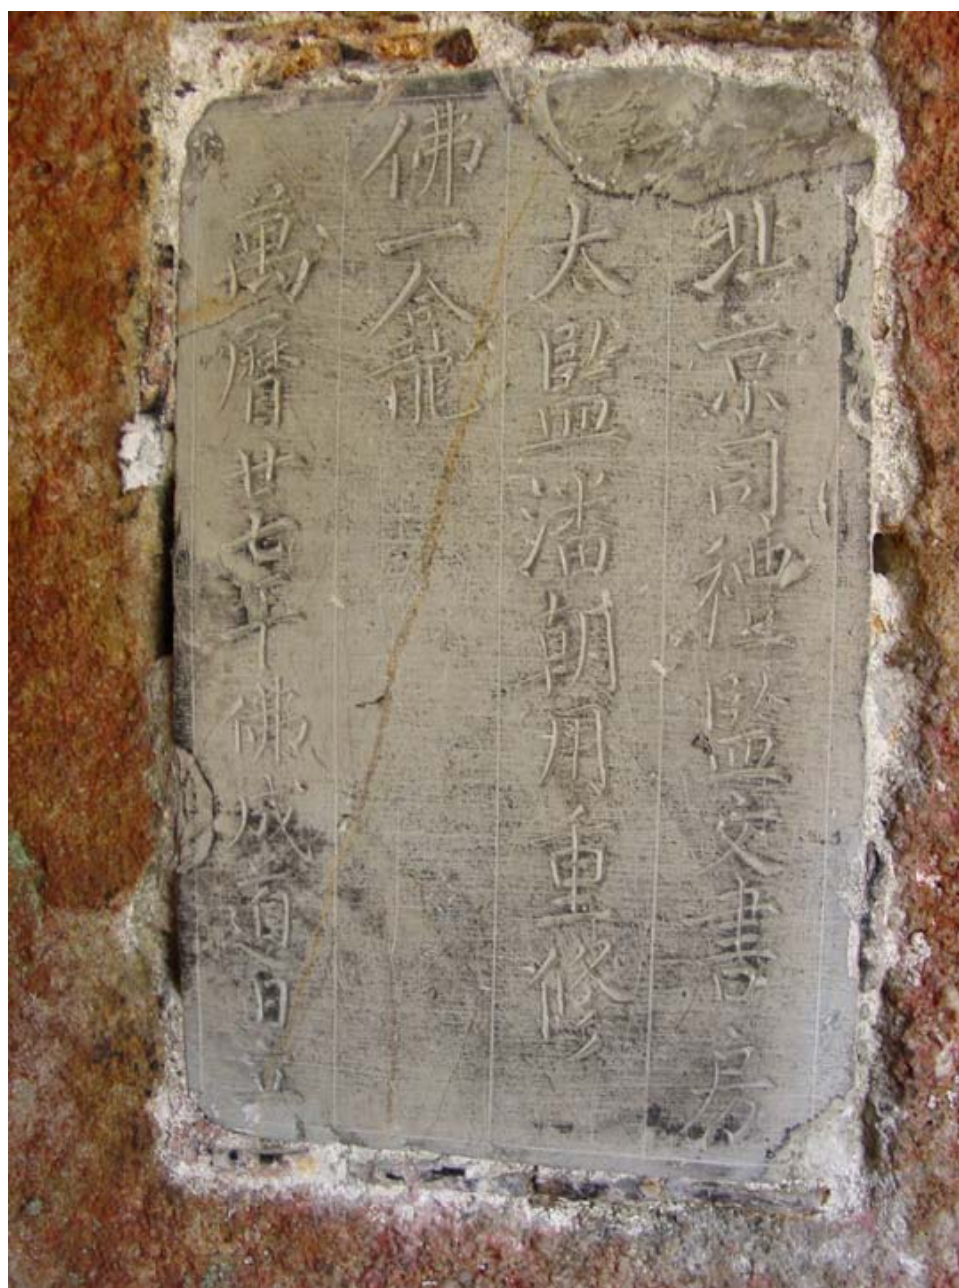 北京司禮監文書房
太監潘朝用重修
佛一龕
萬曆廿七年佛成道日立